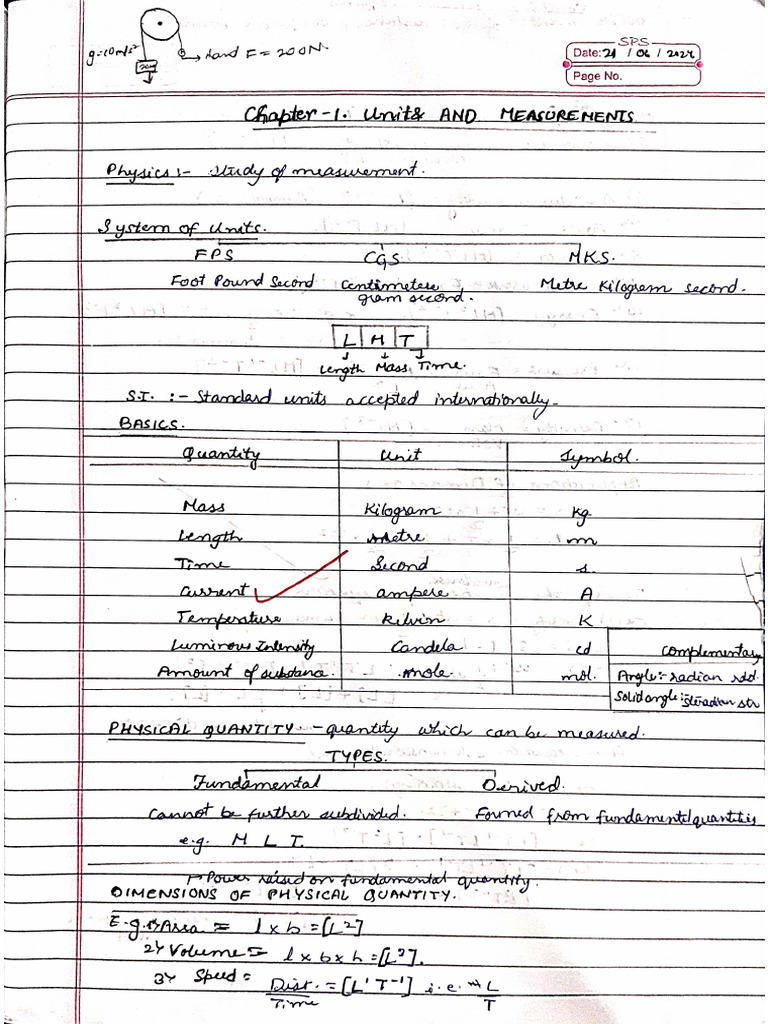 g=10m/s²
20kg
Hand F = 200N.
SPS
Date: 21 / 06 / 2024
Page No.
Chapter-1. Units AND MEASUREMENTS
Physics :- Study of measurement.
System of Units.
FPS CGS MKS.
Foot Pound Second Centimetere Metre Kilogram second.
gram second.
L M T
Length Mass Time.
S.I. :- Standard units accepted internationally.
BASICS.
Quantity Unit Symbol.
Mass Kilogram Kg
Length Metre m
Time Second s.
Current ampere A
Temperature kilvin K
Luminous Intensity Candela cd complementary
Amount of substance. mole mol. Angle:- radian rdd.
Solid angle:- Steradian str
PHYSICAL QUANTITY - quantity which can be measured.
TYPES.
Fundamental Derived.
Cannot be further subdivided. Formed from fundamental quantities
e.g. M L T.
→ Power raised on fundamental quantity.
DIMENSIONS OF PHYSICAL QUANTITY.
E.g. 1> Area = l x b = [L²]
2> Volume = l x b x h = [L³].
3> Speed = Dist. = [L¹ T⁻¹] i.e. L
Time T